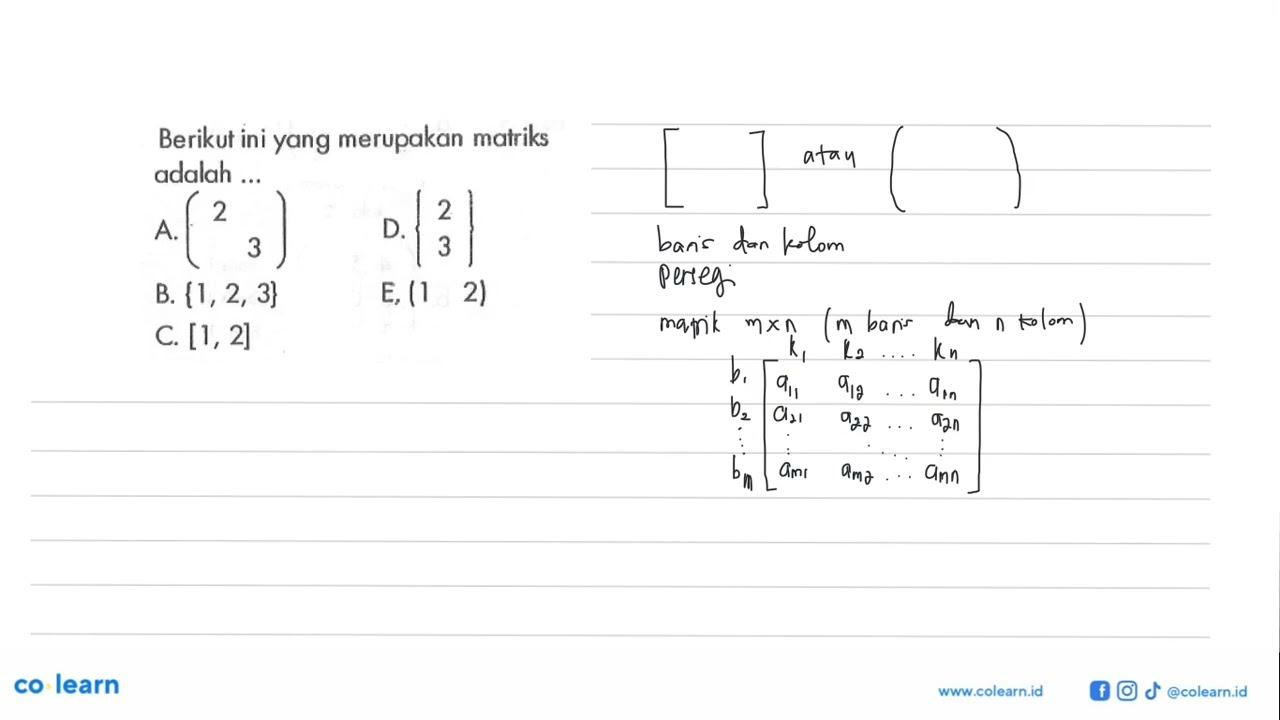 Berikut ini yang merupakan matriks
adalah ...
A. ( 2
3 )
D. { 2
3 }
B. {1, 2, 3}
E, (1 2)
C. [1, 2]
[ ] atau ( )
baris dan kolom
persegi
matrik m×n (m baris dan n kolom)
k₁ k₂ .... kn
b₁ [ a₁₁ a₁₂ ... a₁n ]
b₂ a₂₁ a₂₂ ... a₂n
⋮ ⋮ ⋱ .... ⋮
bm am₁ am₂ ... amn
co learn
www.colearn.id
@colearn.id